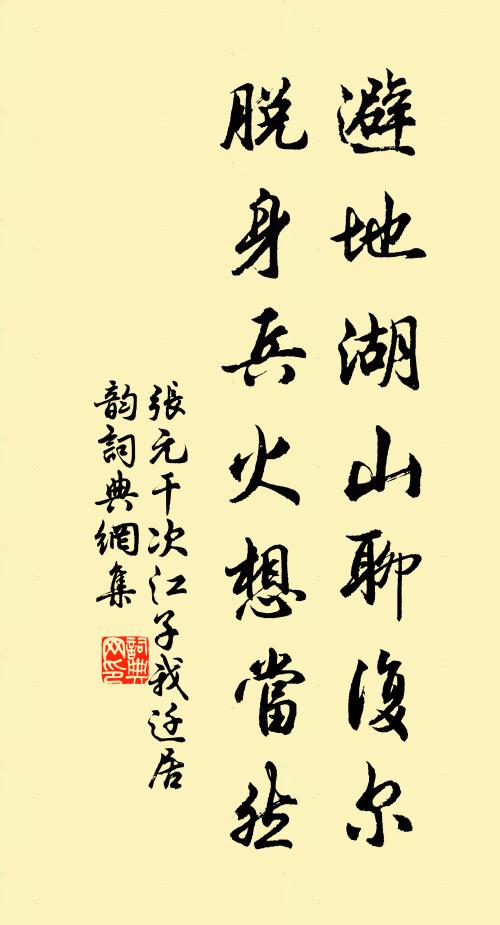 避地湖山聊復尔
脱身兵火想當然
張元干次江子我迁居
韵詞典網集
詞典网印